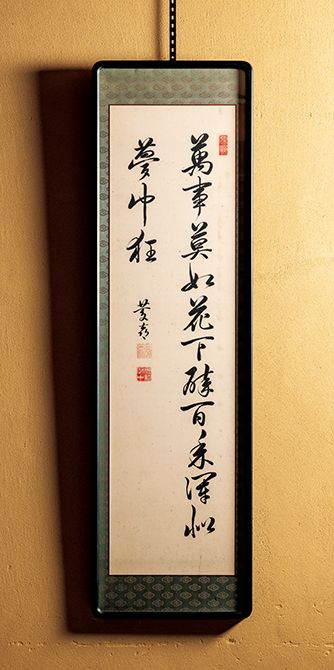 萬事莫如花下酔百年渾似
夢中狂